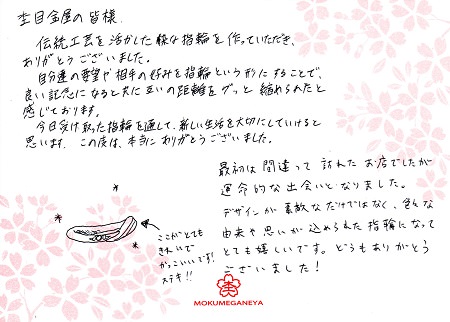 杢目金屋の皆様
伝統工芸を活かした素敵な指輪を作っていただき、
ありがとうございました。
自分達の要望や相手の好みを指輪という形にすることで、
良い記念になると共に互いの距離をグッと縮められたと
感じております。
今日受け取った指輪を通して、新しい生活を大切にしていけると
思います。この度は、本当にありがとうございました。
最初は間違って訪れたお店でしたが
運命的な出会いとなりました。
デザインが素敵なだけではなく、色んな
由来や思いが込められた指輪になって
とても嬉しいです。どうもありがとう
ございました!
ここがとても
きれいで
かっこいいです!
ステキ!!
MOKUMEGANEYA